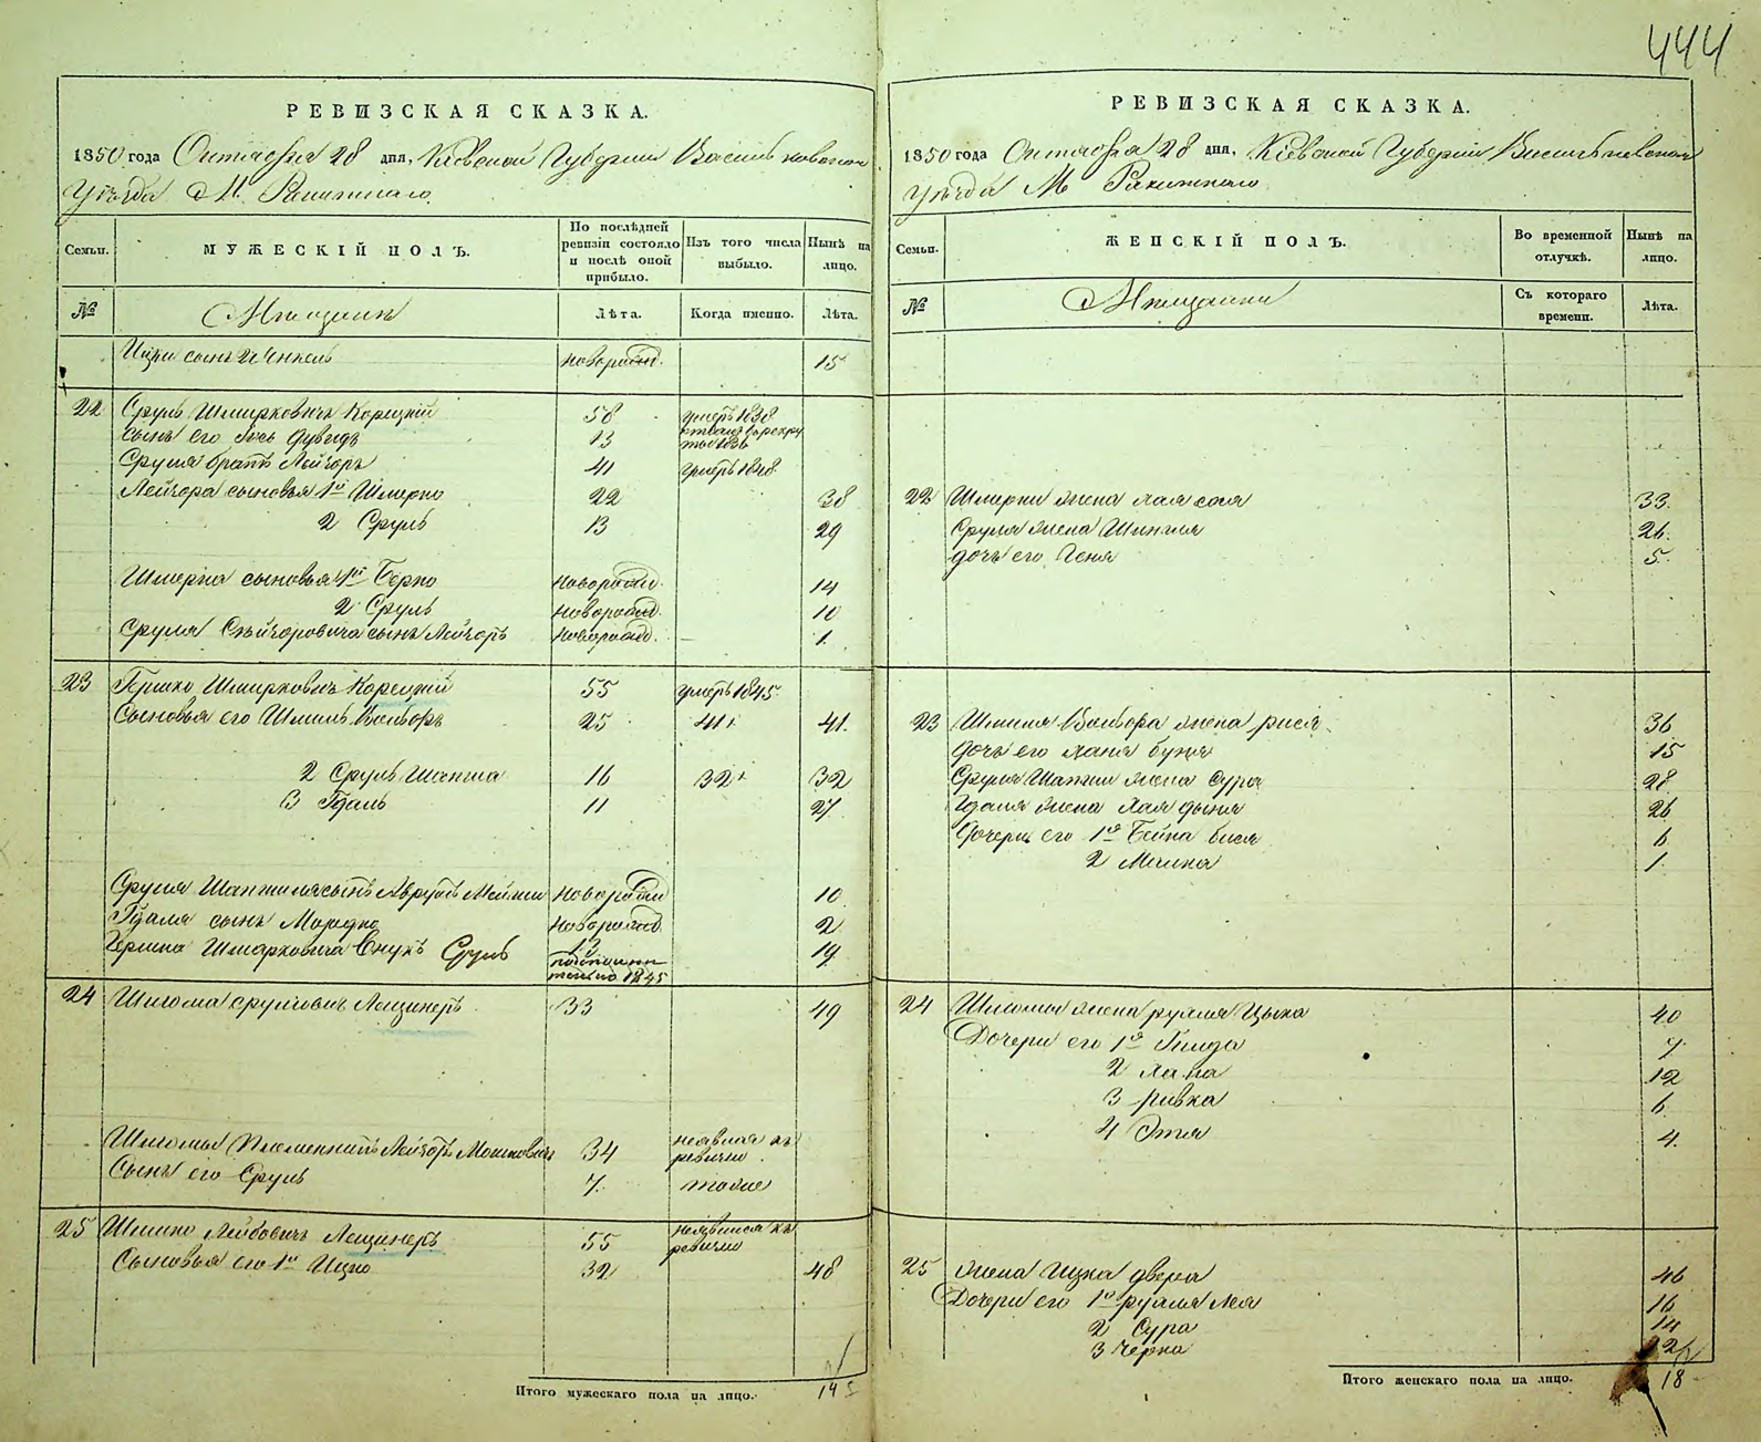 444
РЕВИЗСКАЯ СКАЗКА.
1850 года Октября 28 дня, Кіевской Губерніи Васильковского
Уѣзда М. Ракитнаго.
Семьи.
МУЖЕСКІЙ ПОЛЪ.
По послѣдней ревизіи состояло и послѣ оной прибыло.
Изъ того числа выбыло.
Нынѣ на лицо.
№
Мещане
Лѣта.
Когда именно.
Лѣта.
Ицки сынъ новорожд. 15
22 Сруль Шмирковичъ Корецкій 58 умеръ 1838
сынъ его Іось Дувидъ 13 отданъ в рекруты 1836
Сруля братъ Лейзоръ 41 умеръ 1848
Лейзора сыновья 1й Шмерко 22 38
2 Сруль 13 29
Шмерка сыновья 1й Берко новорожд. 14
2 Сруль новорожд. 10
Сруля сынъ Лейзоръ новорожд. 1
23 Гершко Шмирковичъ Корецкій 55 умеръ 1845
Сыновья его Шмиль 25 41 41
2 Сруль Шапша 16 32 32
3 Гдаль 11 27
Сруля сынъ новорожд 10
Гдаля сынъ Мордко новорожд 2
Гершка Шмирковича внукъ Сруль 13 1845 19
24 Шлиома Срулович Лещинеръ 33 49
Шлиомы Племенникъ Лейзоръ Мошковичъ 34 неявился къ ревизии
Сынъ его Сруль 7 тоже
25 Лейбовичъ Лещинеръ 55 неявился къ ревизии
Сыновья его 1й Ицко 32 48
Итого мужескаго пола на лицо. 14
РЕВИЗСКАЯ СКАЗКА.
1850 года Октября 28 дня, Кіевской Губерніи Васильковского
Уѣзда М Ракитнаго
Семьи.
ЖЕНСКІЙ ПОЛЪ.
Во временной отлучкѣ.
Нынѣ на лицо.
№
Мещанки
Съ котораго времени.
Лѣта.
22 Шмерки жена Хая Сося 33
Сруля жена 26
дочь его Геня 5
23 Шмиля жена Рися 36
дочь его Хана 15
Сруля Шапши жена Сура 28
Гдаля жена Хая 26
Дочери его 1я Бейла 6
2 Малка 1
24 Шлиомы жена Рухля Цыка 40
Дочери его 1я 7
2 Хана 12
3 Ривка 6
4 Этя 4
25 жена Ицка Двера 46
Дочери его 1я Рухля Лея 16
2 Сура 14
3 Черна 12
Итого женскаго пола на лицо. 18